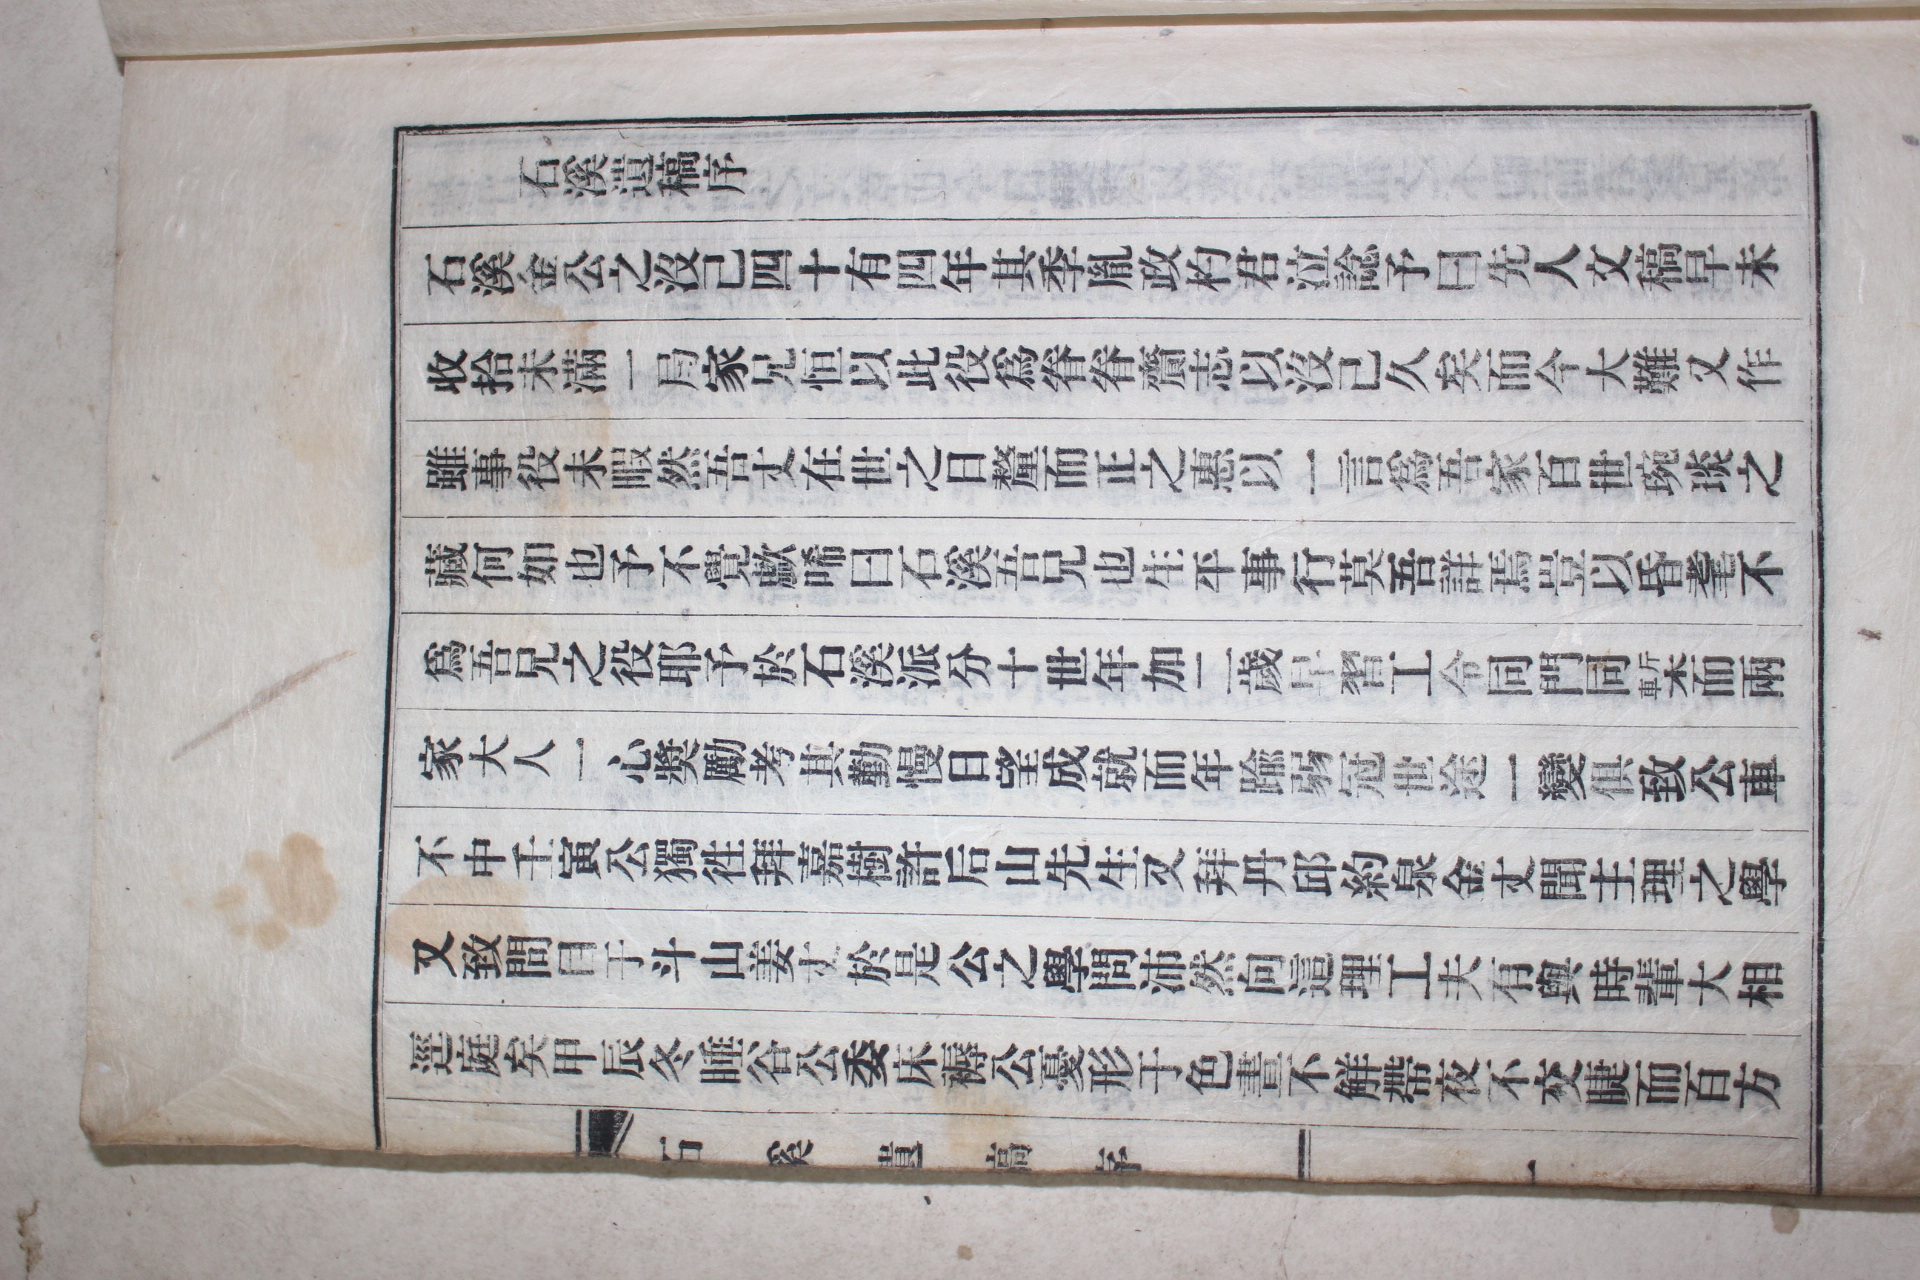 石溪遺稿序
石溪金公之沒已四十有四年其季胤政杓君泣諗予曰先人文稿早未
收拾未滿一局家兄恒以此役爲眷眷齎志以沒已久矣而今大難又作
雖事役未暇然吾丈在世之日釐而正之惠以一言爲吾家百世琬琰之
藏何如也予不覺歔唏曰石溪吾兄也生平事行莫吾詳焉豈以昏耄不
爲吾兄之役耶予於石溪派分十世年加二歲早習工令同門同槧而兩
家大人一心獎勵考其勤慢日望成就而年踰弱冠世途一變俱致公車
不中壬寅公獨徃拜嘉樹許后山先生又拜丹邱約泉金丈聞主理之學
又致問目于斗山姜丈於是公之學問沛然向這理工夫有與時輩大相
逕庭矣甲辰冬睡谷公委床褥公憂形于色晝不解帶夜不交睫而百方
石溪遺稿序 一